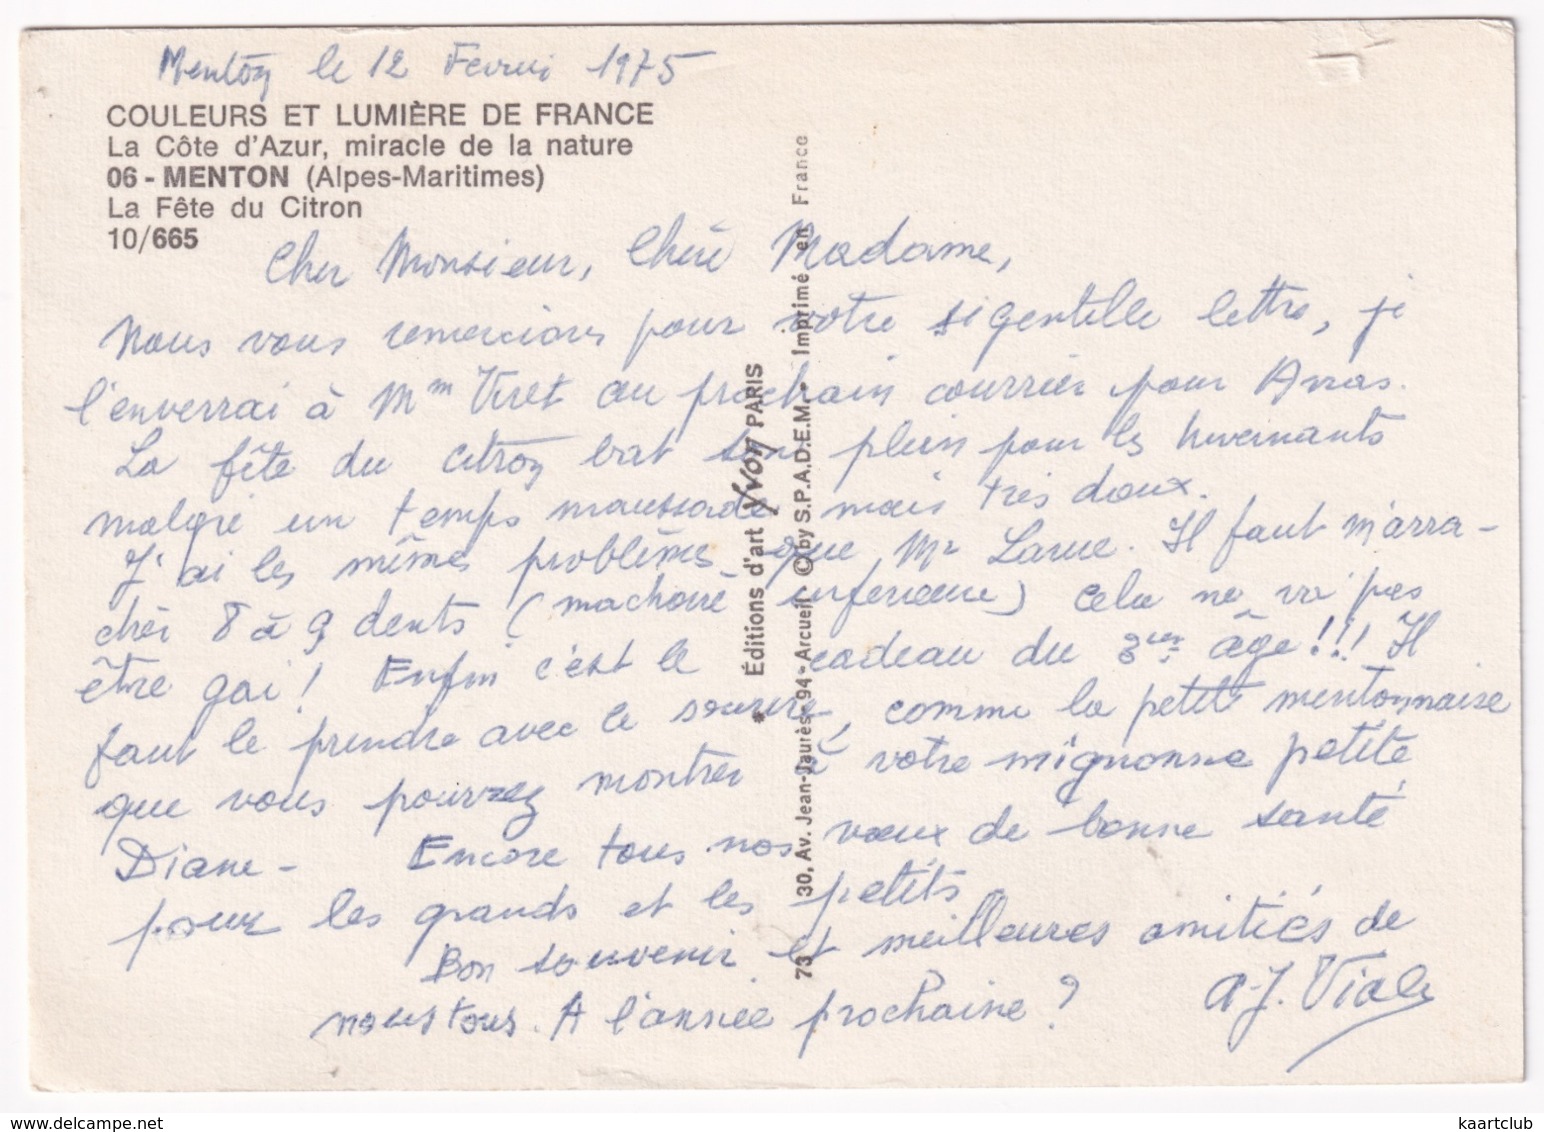 Menton le 12 Fevrier 1975
COULEURS ET LUMIÈRE DE FRANCE
La Côte d'Azur, miracle de la nature
06 - MENTON (Alpes-Maritimes)
La Fête du Citron
10/665
Cher Monsieur, Chère Madame,
Nous vous remercions pour votre si gentille lettre, je
l'enverrai à Mm Viret au prochain courrier pour Arras.
La fête du citron bat son plein pour les hivernants
malgré un temps maussade mais très doux.
J'ai les mêmes problèmes que Mr Larue. Il faut m'arra-
cher 8 à 9 dents (machoire inferieure) cela ne va pas
être gai ! Enfin c'est le cadeau du 3ème âge !!! Il
faut le prendre avec le sourire, comme la petite mentonnaise
que vous pourrez montrer à votre mignonne petite
Diane - Encore tous nos vœux de bonne santé
pour les grands et les petits
Bon souvenir et meilleures amitiés de
nous tous. A l'année prochaine ? A-J. Viale
* Éditions d'art Yvon PARIS
73 30, Av. Jean-Jaurès - 94 - Arcueil - © by S.P.A.D.E.M. - Imprimé en France
kaartclub